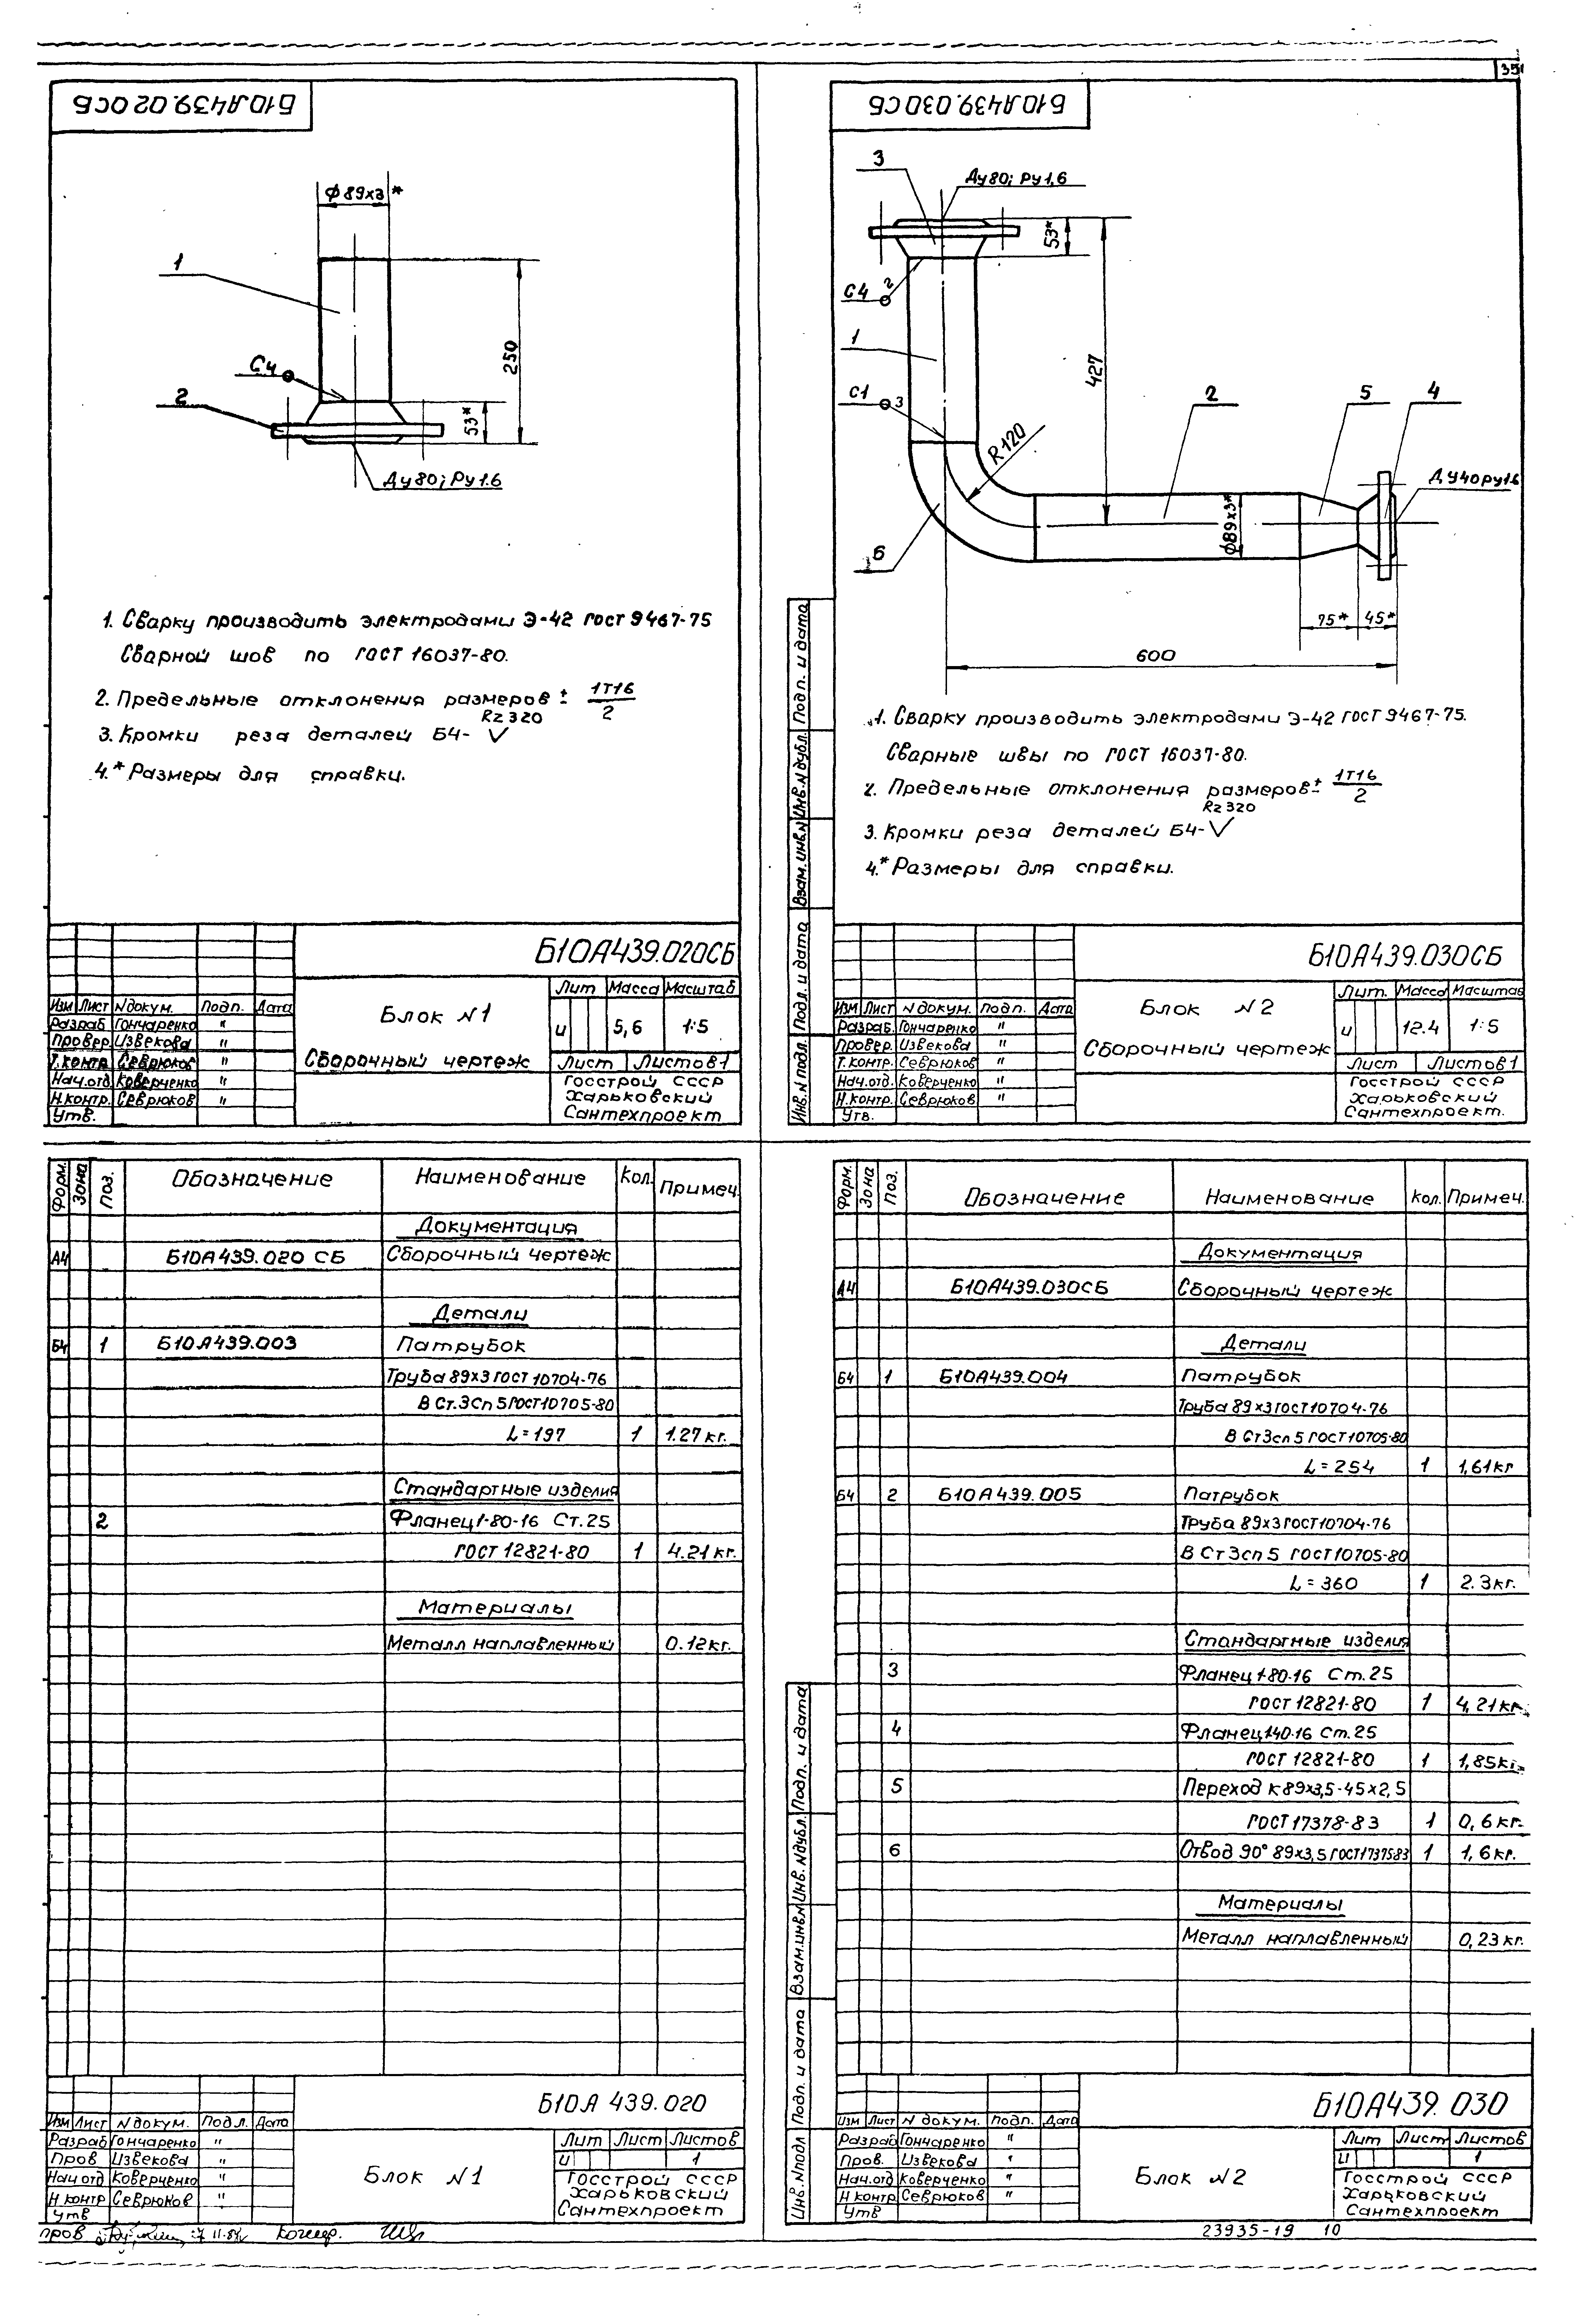 35
Б10А439.020СБ
Ф89х3*
1
250
С4
2
53*
Ду80; Ру1.6
1. Сварку производить электродами Э-42 ГОСТ 9467-75
Сварной шов по ГОСТ 16037-80.
2. Предельные отклонения размеров ± 1Т16/2
3. Кромки реза деталей Б4- Rz320
4.* Размеры для справки.
Б10А439.020СБ
Блок N1
Сборочный чертеж
Лит Масса Масштаб
и 5,6 1:5
Лист Листов 1
Госстрой СССР
Харьковский
Сантехпроект
Изм Лист N докум. Подп. Дата
Разраб Гончаренко "
Провер. Извекова "
Т.контр Севрюков "
Нач.отд. Коверченко "
Н.контр. Севрюков "
Утв.
Б10А439.030СБ
3
Ду80; Ру1,6
53*
С4
2
1
427
С1
3
R120
2
5
4
Ду40 Ру1.6
Ф89х3*
6
75*
45*
600
1. Сварку производить электродами Э-42 ГОСТ 9467-75.
Сварные швы по ГОСТ 16037-80.
2. Предельные отклонения размеров ± 1Т16/2
3. Кромки реза деталей Б4- Rz320
4.* Размеры для справки.
Инв. N подл. Подп. и дата Взам. инв. N Инв. N дубл. Подп. и дата
Б10А439.030СБ
Блок N2
Сборочный чертеж
Лит. Масса Масштаб
и 12.4 1:5
Лист Листов 1
Госстрой СССР
Харьковский
Сантехпроект.
Изм Лист N докум. Подп. Дата
Разраб. Гончаренко "
Провер. Извекова "
Т.контр. Севрюков "
Нач.отд. Коверченко "
Н.контр. Севрюков "
Утв.
Форм. Зона Поз. Обозначение Наименование Кол. Примеч.
Документация
А4 Б10А439.020 СБ Сборочный чертеж
Детали
Б4 1 Б10А439.003 Патрубок
Труба 89х3 ГОСТ 10704-76
В Ст.3сп 5 ГОСТ 10705-80
L=197 1 1.27кг.
Стандартные изделия
2 Фланец 1-80-16 Ст.25
ГОСТ 12821-80 1 4.21кг.
Материалы
Металл наплавленный 0.12кг.
Б10А 439.020
Блок N1
Лит Лист Листов
и 1
Госстрой СССР
Харьковский
Сантехпроект
Изм Лист N докум. Подп. Дата
Разраб Гончаренко "
Пров Извекова "
Нач.отд Коверченко "
Н контр Севрюков "
Утв
пров
Форм. Зона Поз. Обозначение Наименование Кол. Примеч.
Документация
А4 Б10А439.030СБ Сборочный чертеж
Детали
Б4 1 Б10А439.004 Патрубок
Труба 89х3 ГОСТ 10704-76
В Ст3сп 5 ГОСТ 10705-80
L=254 1 1,61кг
Б4 2 Б10А439.005 Патрубок
Труба 89х3 ГОСТ 10704-76
В Ст 3сп 5 ГОСТ 10705-80
L=360 1 2.3кг.
Стандартные изделия
3 Фланец 1-80-16 Ст.25
ГОСТ 12821-80 1 4,21кг.
4 Фланец 1-40-16 Ст.25
ГОСТ 12821-80 1 1,85кг.
5 Переход К 89х3,5-45х2,5
ГОСТ 17378-83 1 0,6кг.
6 Отвод 90° 89х3,5 ГОСТ 17375 83 1 1,6кг.
Материалы
Металл наплавленный 0,23кг.
Инв. N подл Подп. и дата Взам. инв. N Инв. N дубл. Подп. и дата
Б10А439.030
Блок N2
Лит Лист Листов
и 1
Госстрой СССР
Харьковский
Сантехпроект
Изм Лист N докум. Подп. Дата
Разраб Гончаренко "
Пров. Извекова "
Нач.отд Коверченко "
Н контр Севрюков "
Утв
23935-19 10